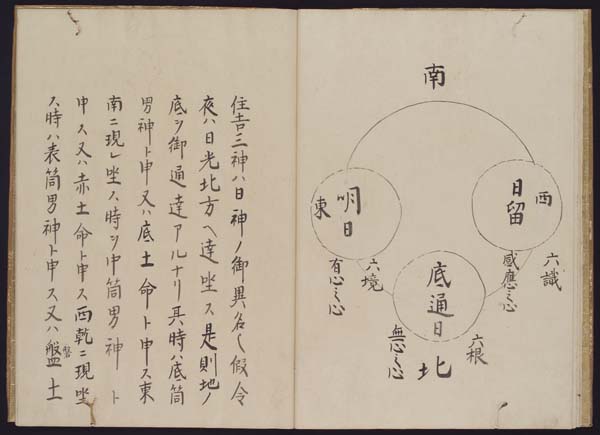 南
西
日留
東
明日
六識
感應之心
六境
有心之心
底通日
六根
無心之心
北
住吉三神ハ日神ノ御異名〆假令
夜ハ日光北方ヘ達坐ス是則地ノ
底ヲ御通達アルナリ其時ハ底筒
男神ト申又ハ底土命ト申ス東
南ニ現レ坐ス時ヲ中筒男神ト
申ス又ハ赤土命ト申ス西乾ニ現坐
ス時ハ表筒男神ト申ス又ハ盤土